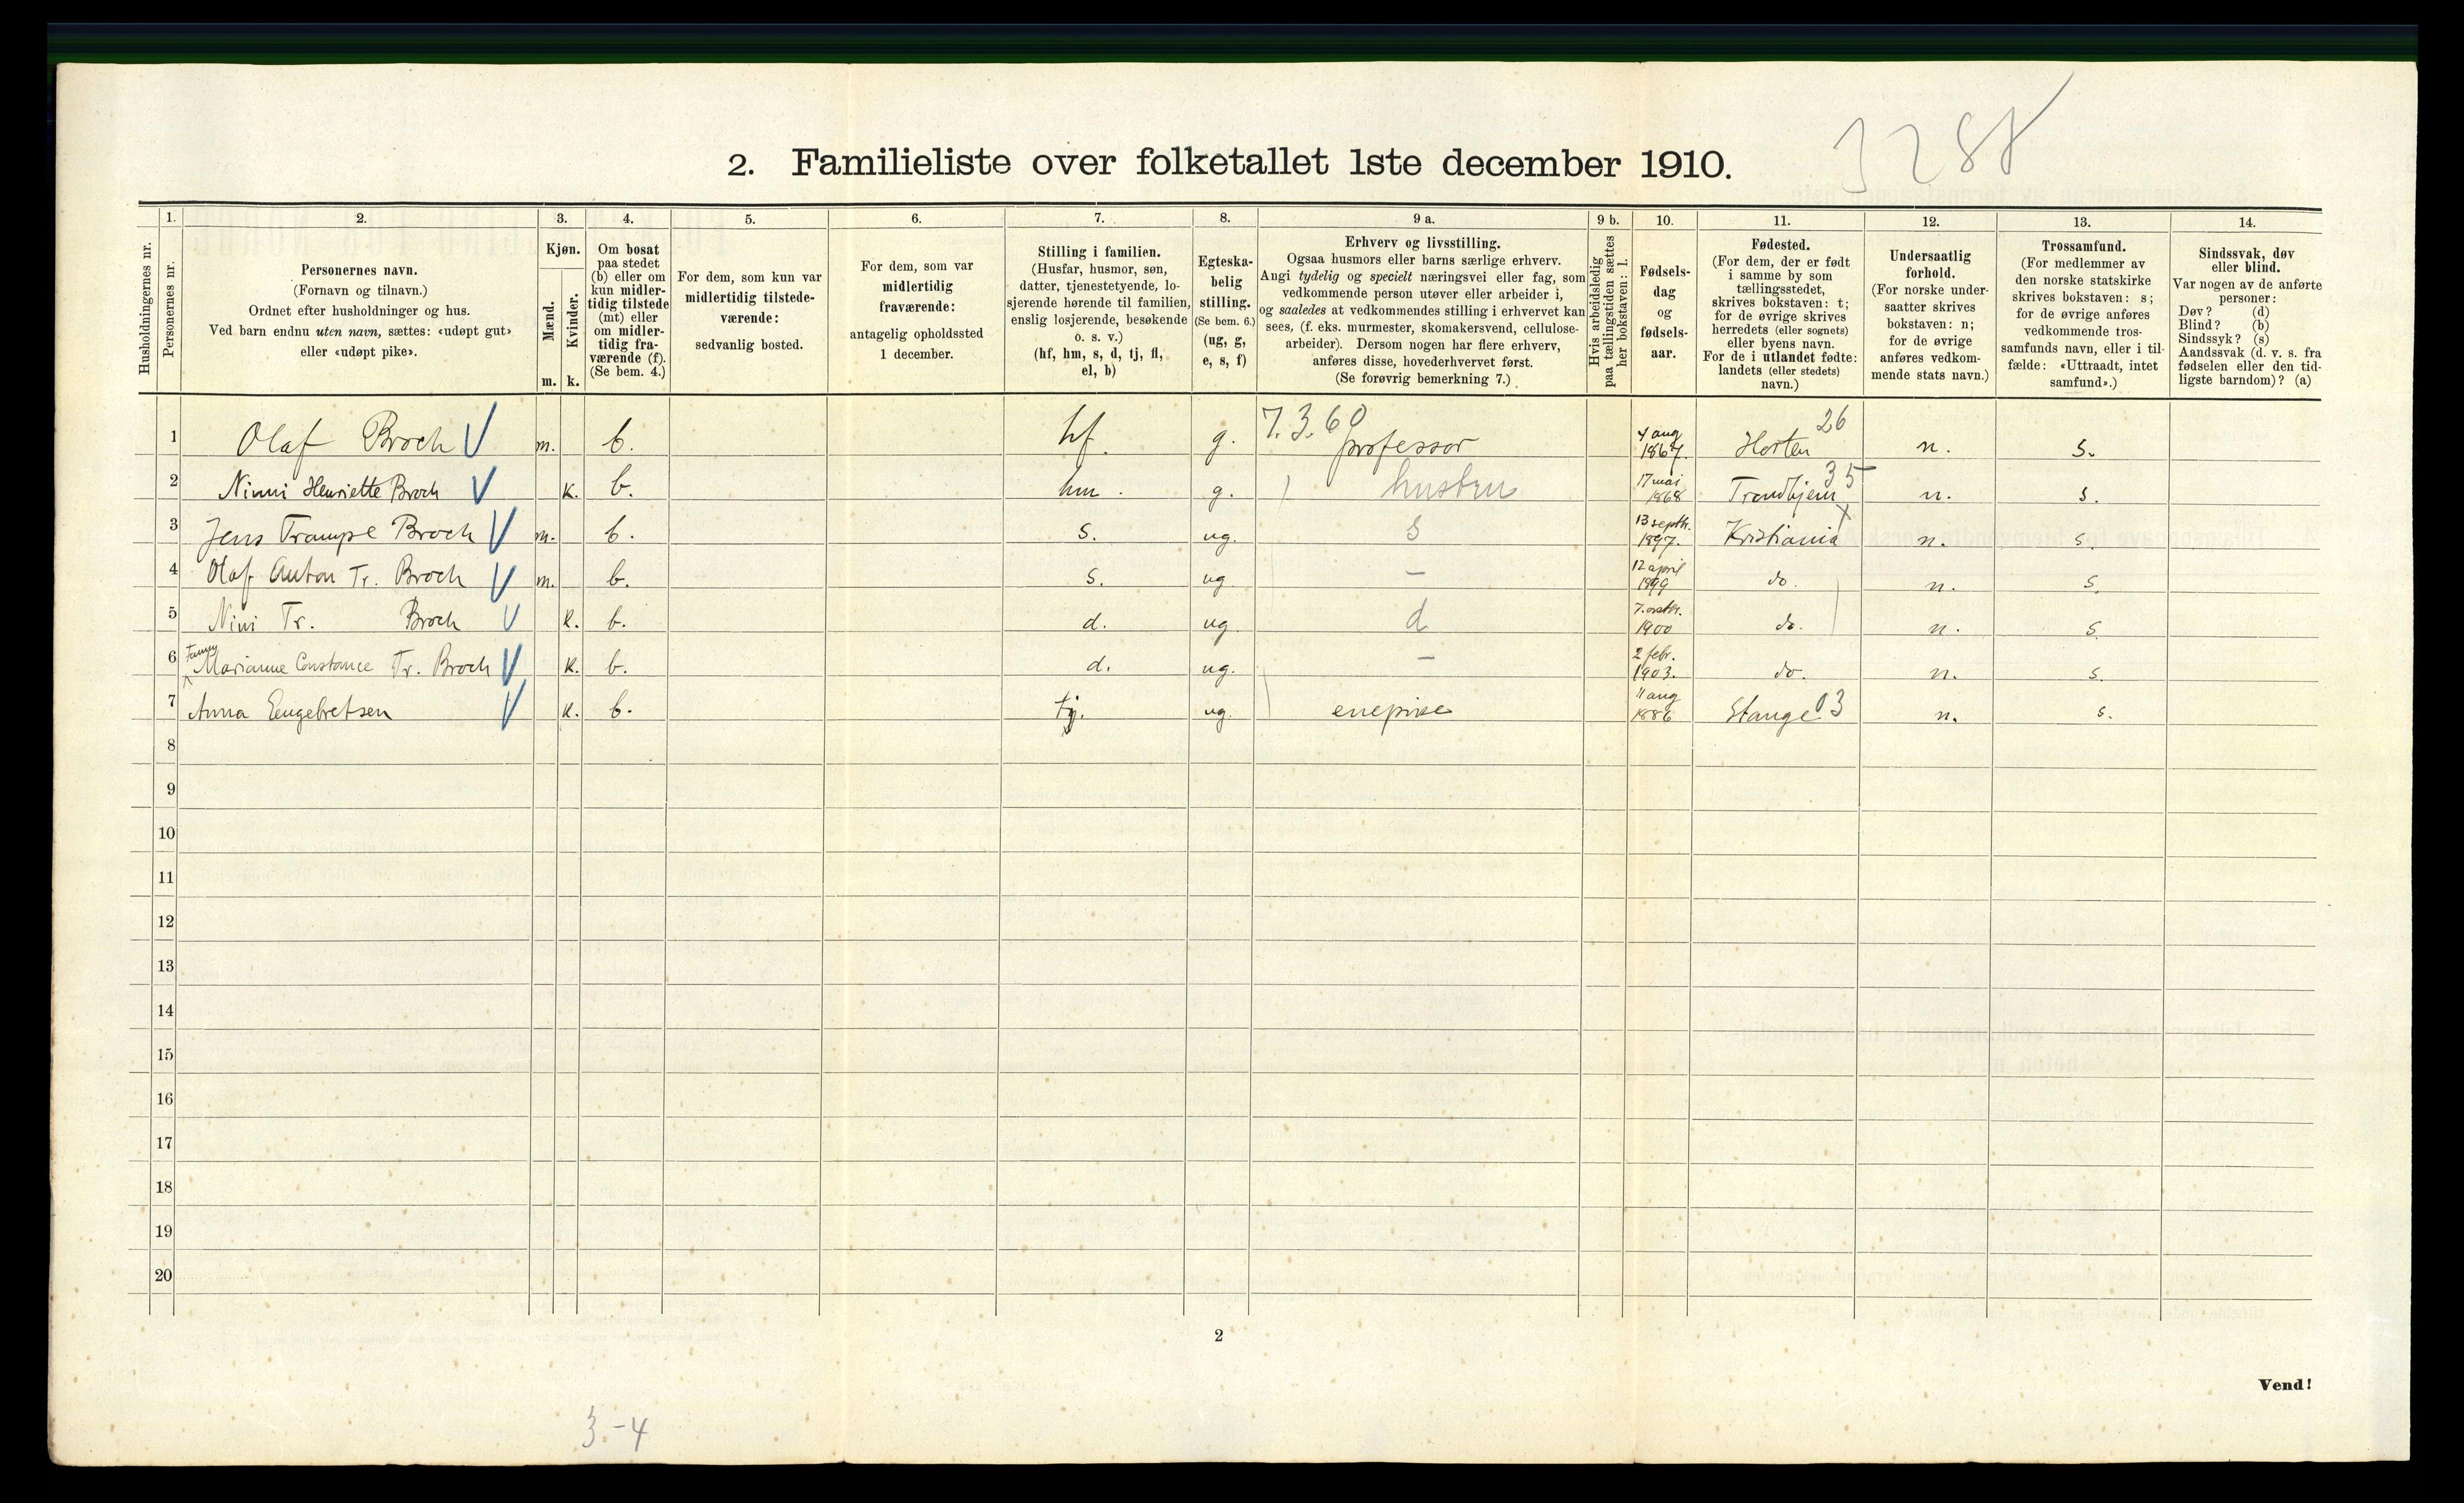 3288
2. Familieliste over folketallet 1ste december 1910.
Husholdningernes nr.
1.
Personernes nr.
2.
Personernes navn.
(Fornavn og tilnavn.)
Ordnet efter husholdninger og hus.
Ved barn endnu uten navn, sættes: «udøpt gut»
eller «udøpt pike».
3.
Kjøn.
Mænd.
Kvinder.
m. k.
4.
Om bosat
paa stedet
(b) eller om
kun midler-
tidig tilstede
(mt) eller
om midler-
tidig fra-
værende (f).
(Se bem. 4.)
5.
For dem, som kun var
midlertidig tilstede-
værende:
sedvanlig bosted.
6.
For dem, som var
midlertidig
fraværende:
antagelig opholdssted
1 december.
7.
Stilling i familien.
(Husfar, husmor, søn,
datter, tjenestetyende, lo-
sjerende hørende til familien,
enslig losjerende, besøkende
o. s. v.)
(hf, hm, s, d, tj, fl,
el, b)
8.
Egteska-
belig
stilling.
(Se bem. 6.)
(ug, g,
e, s, f)
9 a.
Erhverv og livsstilling.
Ogsaa husmors eller barns særlige erhverv.
Angi tydelig og specielt næringsvei eller fag, som
vedkommende person utøver eller arbeider i,
og saaledes at vedkommendes stilling i erhvervet kan
sees, (f. eks. murmester, skomakersvend, cellulose-
arbeider). Dersom nogen har flere erhverv,
anføres disse, hovederhvervet først.
(Se forøvrig bemerkning 7.)
9 b.
Hvis arbeidsledig
paa tællingstiden sættes
her bokstaven: l.
10.
Fødsels-
dag
og
fødsels-
aar.
11.
Fødested.
(For dem, der er født
i samme by som
tællingsstedet,
skrives bokstaven: t;
for de øvrige skrives
herredets (eller sognets)
eller byens navn.
For de i utlandet fødte:
landets (eller stedets)
navn.)
12.
Undersaatlig
forhold.
(For norske under-
saatter skrives
bokstaven: n;
for de øvrige
anføres vedkom-
mende stats navn.)
13.
Trossamfund.
(For medlemmer av
den norske statskirke
skrives bokstaven: s;
for de øvrige anføres
vedkommende tros-
samfunds navn, eller i til-
fælde: «Uttraadt, intet
samfund».)
14.
Sindssvak, døv
eller blind.
Var nogen av de anførte
personer:
Døv? (d)
Blind? (b)
Sindssyk? (s)
Aandssvak (d. v. s. fra
fødselen eller den tid-
ligste barndom)? (a)
7.3.60 26
1 Olaf Broch V m. b. hf. g. professor 4 aug 1867. Horten n. s.
2 Ninni Henriette Broch V k. b. hm. g. hustru 17 mai 1868 Trondhjem 35 n. s.
3 Jens Trampe Broch V m. b. s. ug. s 13 septbr. 1897. Kristiania x n. s.
4 Olaf Anton Tr. Broch V m. b. s. ug — 12 april 1899 do. n. s.
5 Nini Tr. Broch V k. b. d. ug. d 7. oktbr. 1900 do. n. s.
6 Fanny Marianne Constance Tr. Broch V k. b. d. ug. — 2 febr. 1903. do. n. s.
7 Anna Engebretsen V k. b. tj. ug. enepike 11 aug 1886 Stange 03 n. s.
8
9
10
11
12
13
14
15
16
17
18
19
20
2
Vend!
3-4